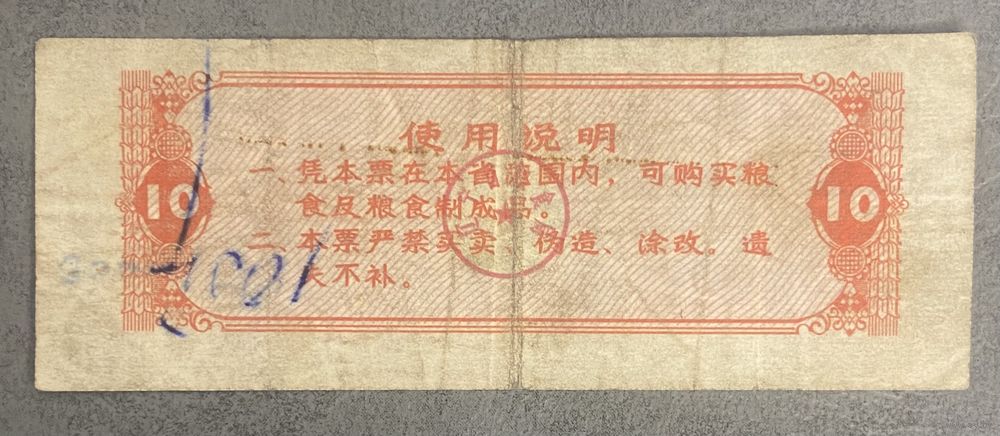 使用说明
一、凭本票在本省范围内，可购买粮
食及粮食制成品。
二、本票严禁买卖、伪造、涂改。遗
失不补。
10
10